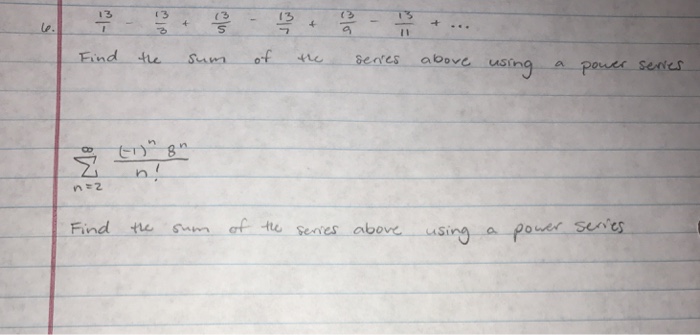 6. 13/1 - 13/3 + 13/5 - 13/7 + 13/9 - 13/11 + ...
Find the sum of the series above using a power series
∞
Σ (-1)^n 8^n / n!
n=2
Find the sum of the series above using a power series